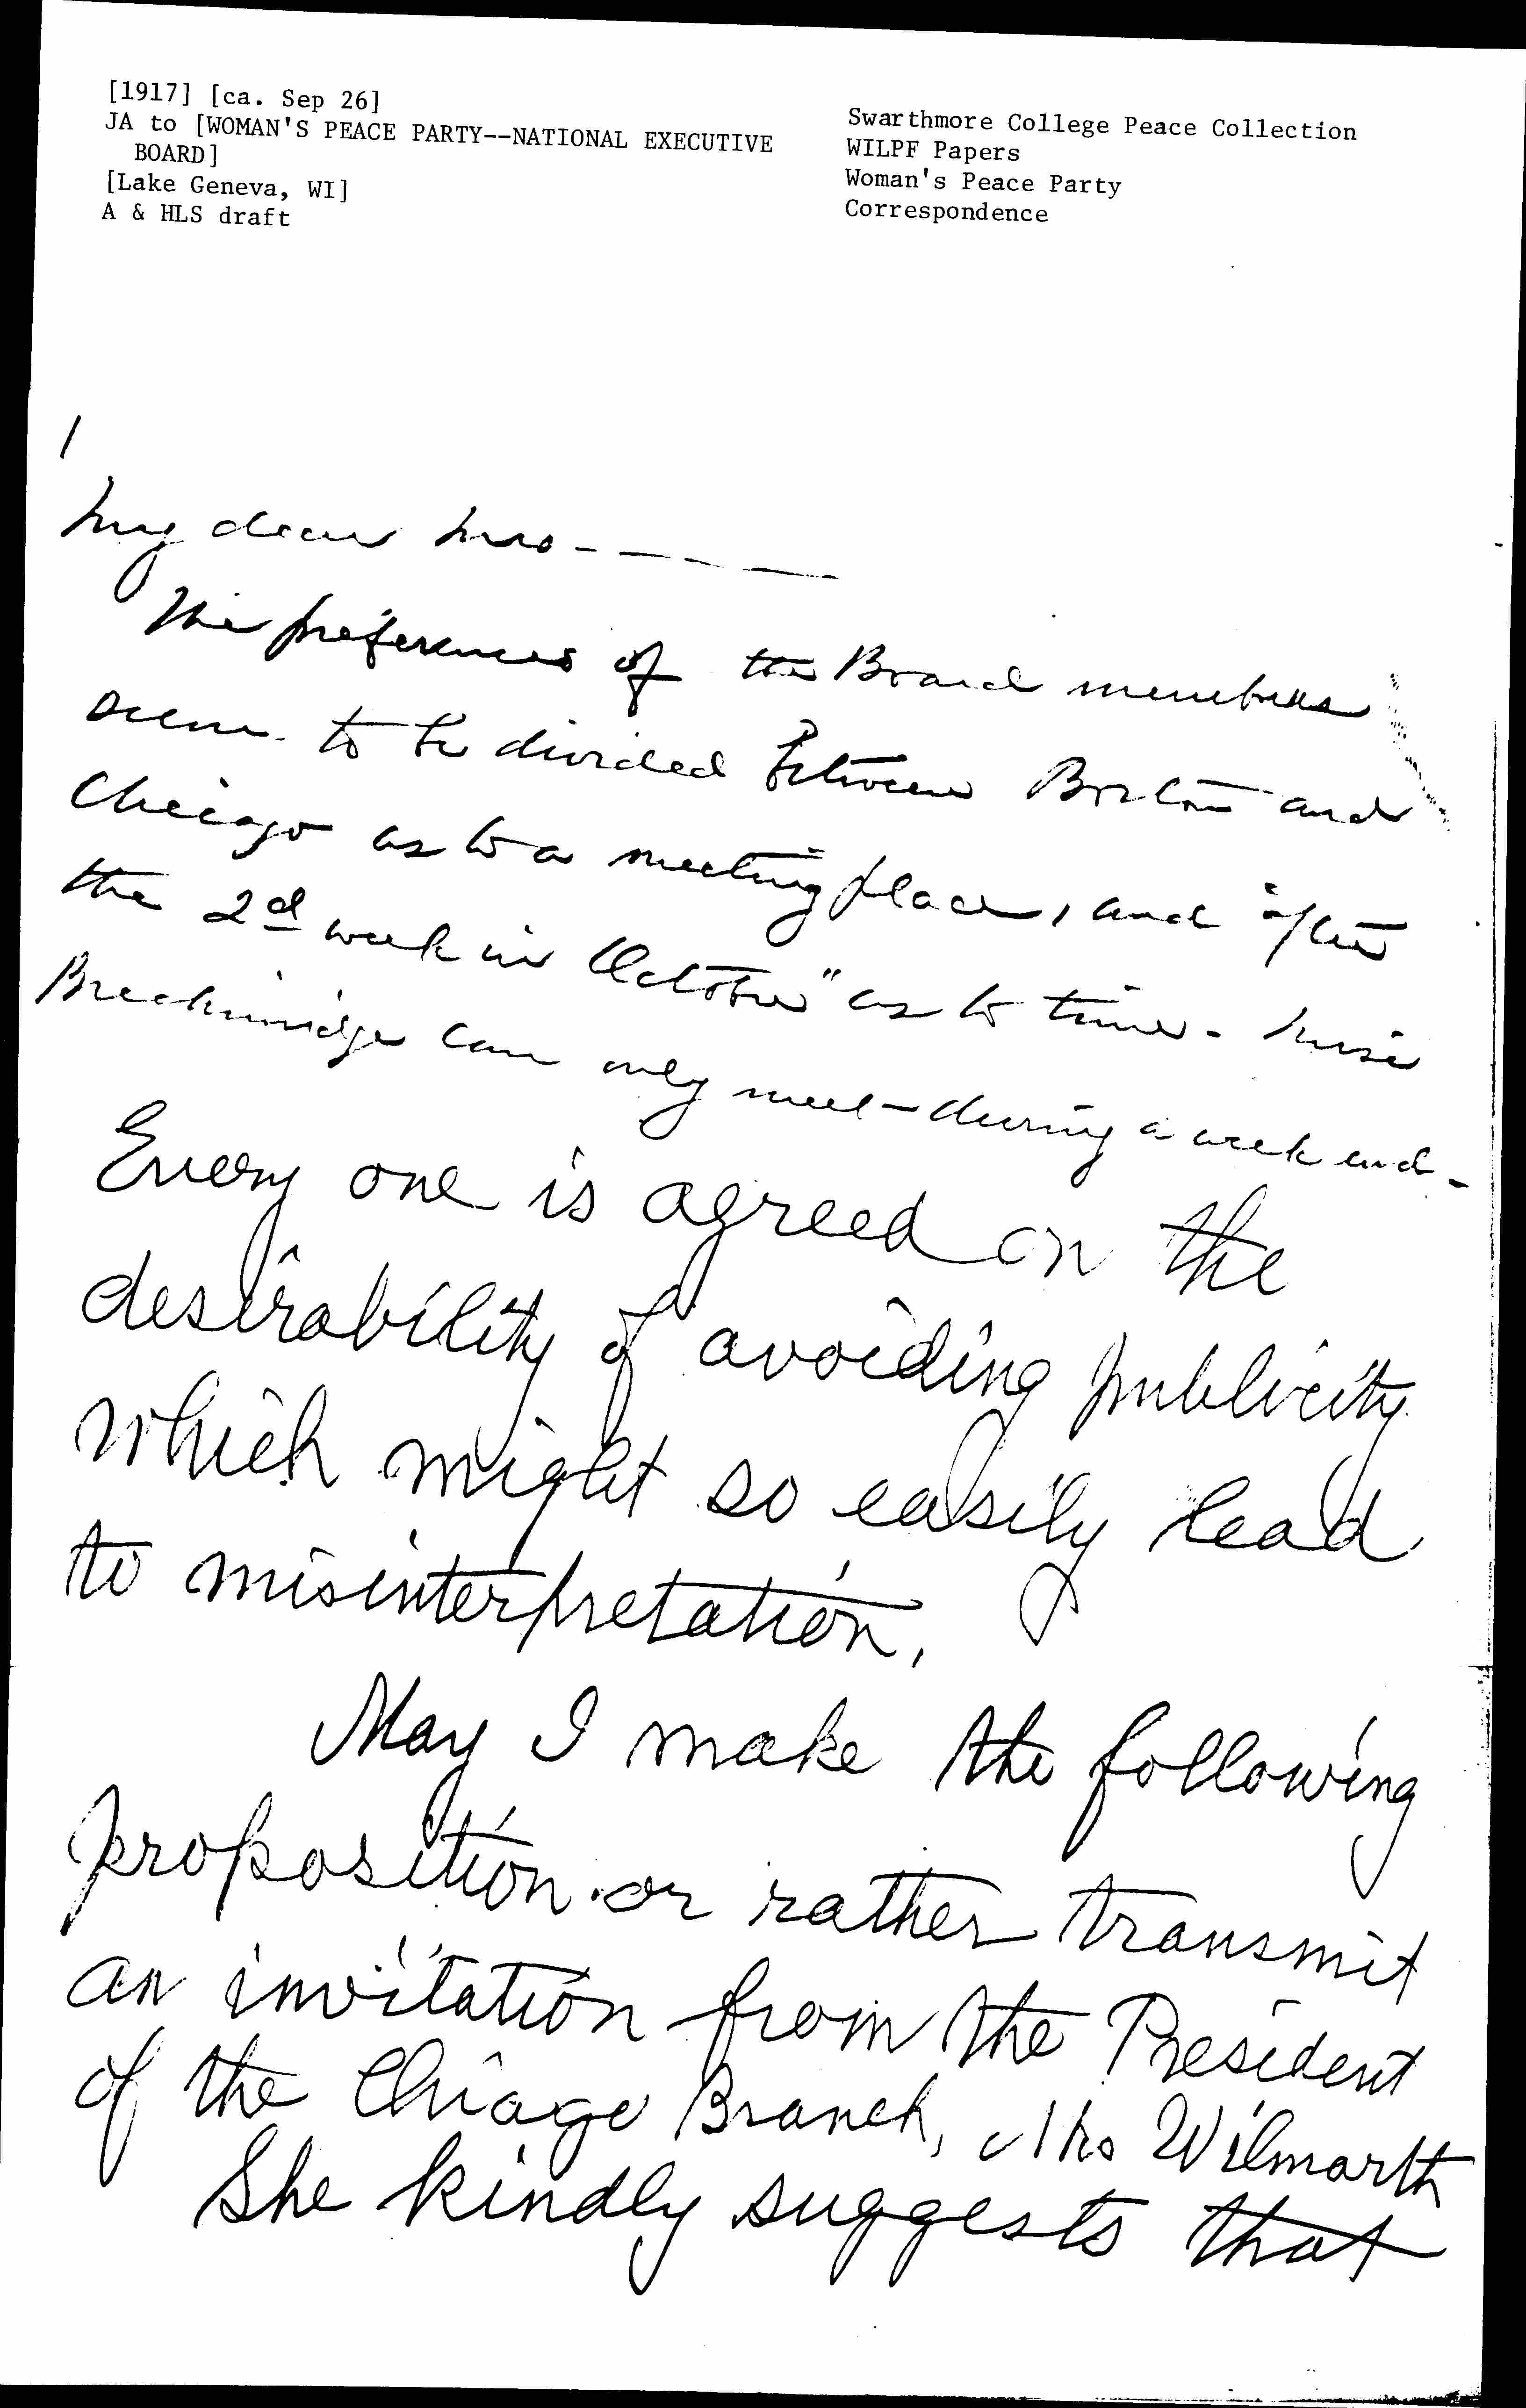 [1917] [ca. Sep 26]
JA to [WOMAN'S PEACE PARTY--NATIONAL EXECUTIVE
BOARD]
[Lake Geneva, WI]
A & HLS draft
Swarthmore College Peace Collection
WILPF Papers
Woman's Peace Party
Correspondence
1
My dear Mrs - — - —
The preferences of the Board members
seem to be divided between Boston and
Chicago as to a meeting place, and "after
the 2d week in October" as to time. Miss
Breckinridge can only meet during a week end -
Every one is agreed on the
desirability of avoiding publicity
which might so easily lead
to misinterpretation.
May I make the following
proposition or rather transmit
an invitation from the President
of the Chicago Branch, Mrs Wilmarth
She kindly suggests that